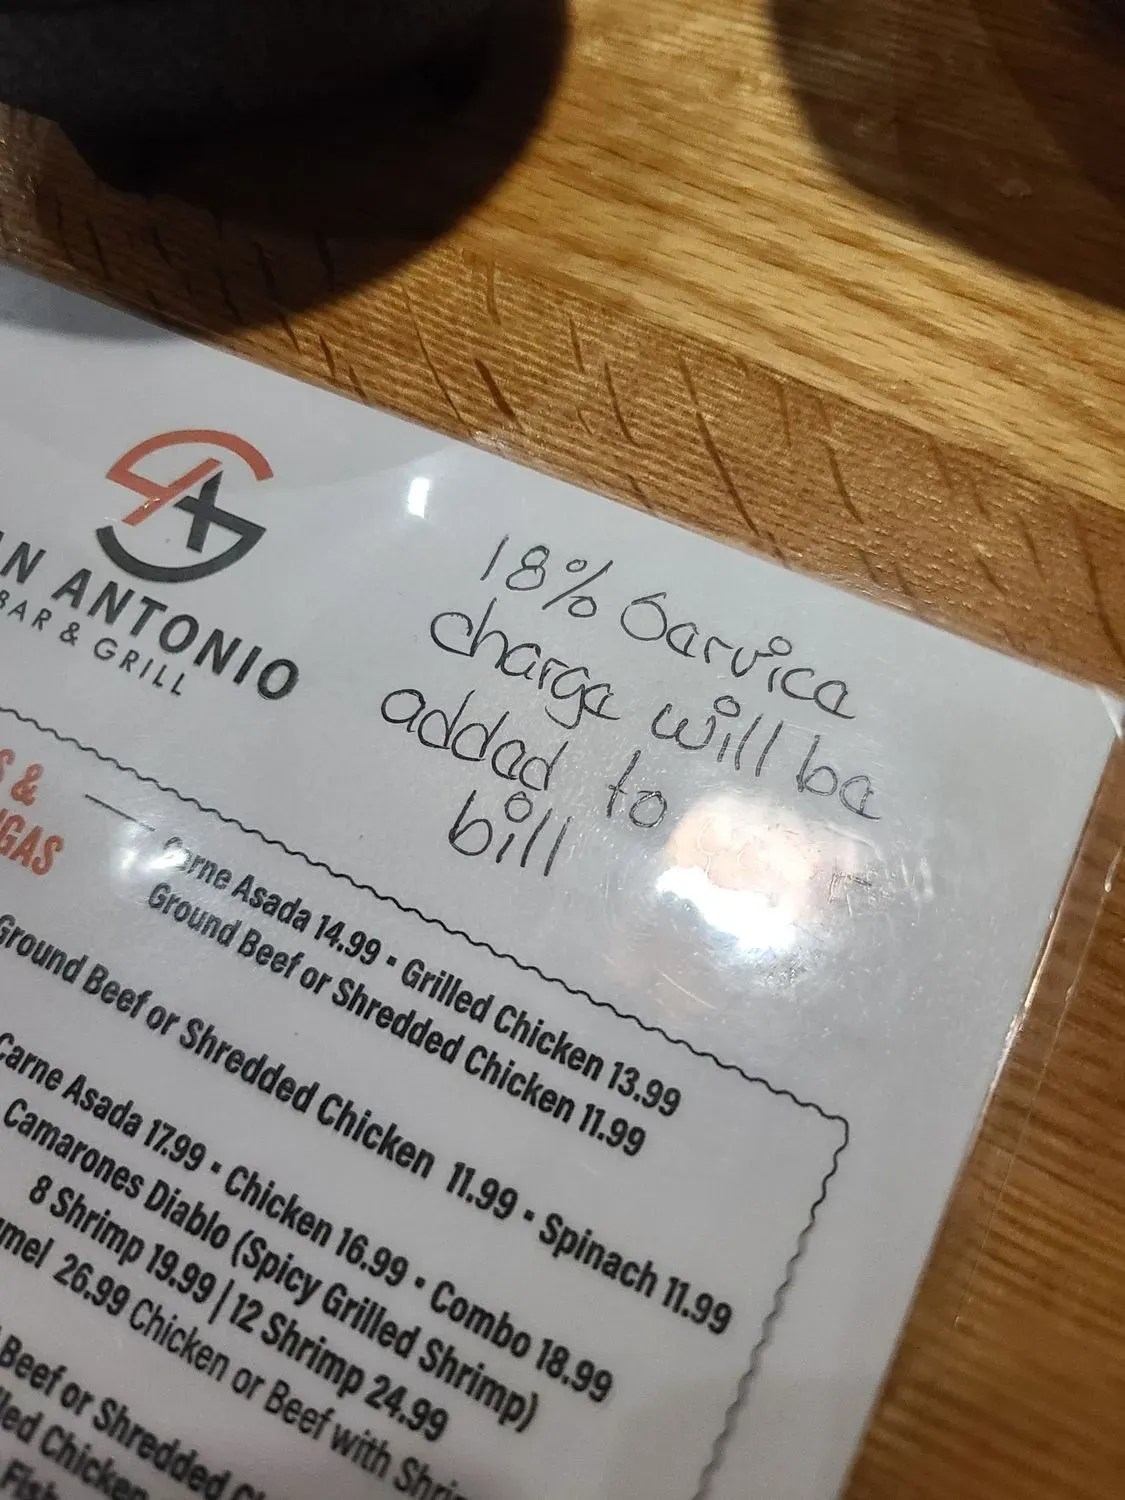 AN ANTONIO
BAR & GRILL
18% Service
charge will be
added to your
bill
S &
NGAS
Carne Asada 14.99 • Grilled Chicken 13.99
Ground Beef or Shredded Chicken 11.99
Ground Beef or Shredded Chicken 11.99 • Spinach 11.99
Carne Asada 17.99 • Chicken 16.99 • Combo 18.99
Camarones Diablo (Spicy Grilled Shrimp)
8 Shrimp 19.99 | 12 Shrimp 24.99
mel 26.99 Chicken or Beef with Shri
Beef or Shredded C
led Chicken
Fish